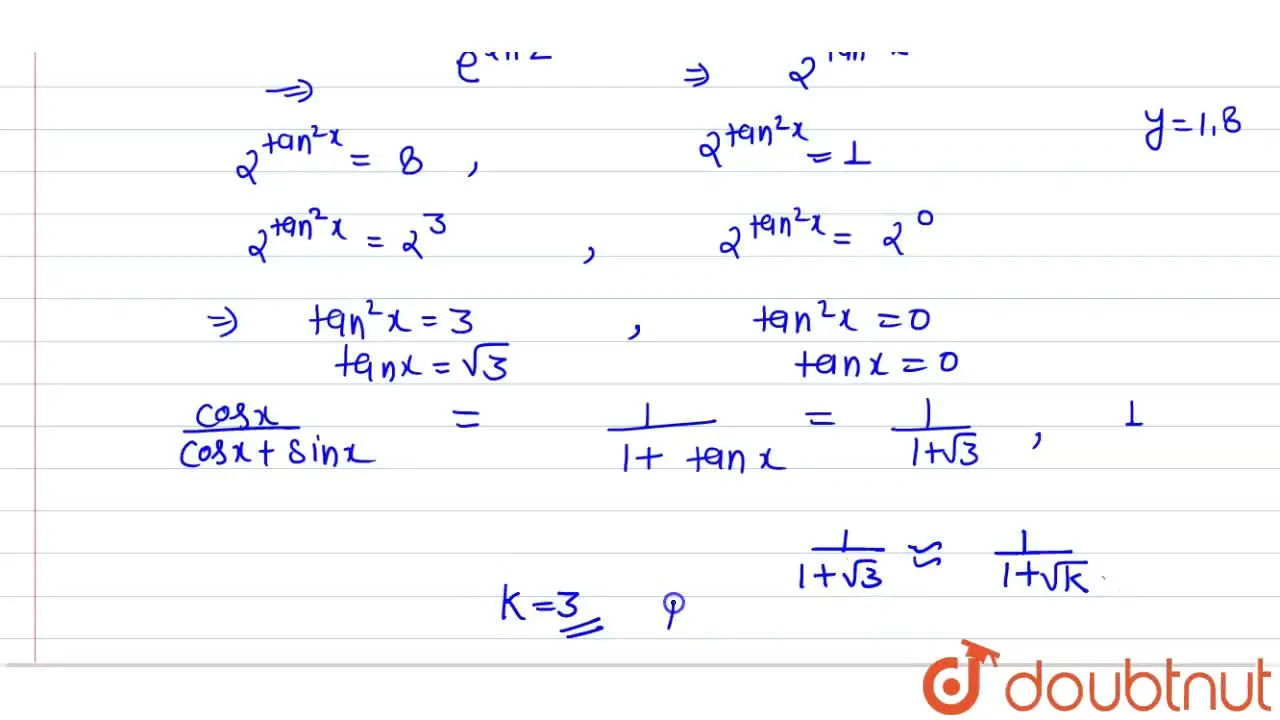 ⇒ ⇒
y = 1, 8
2^tan²x = 8 , 2^tan²x = 1
2^tan²x = 2³ , 2^tan²x = 2⁰
⇒ tan²x = 3 , tan²x = 0
tanx = √3 tanx = 0
cosx/(cosx + sinx) = 1/(1 + tanx) = 1/(1+√3) , 1
1/(1+√3) ≈ 1/(1+√k)
k = 3
doubtnut